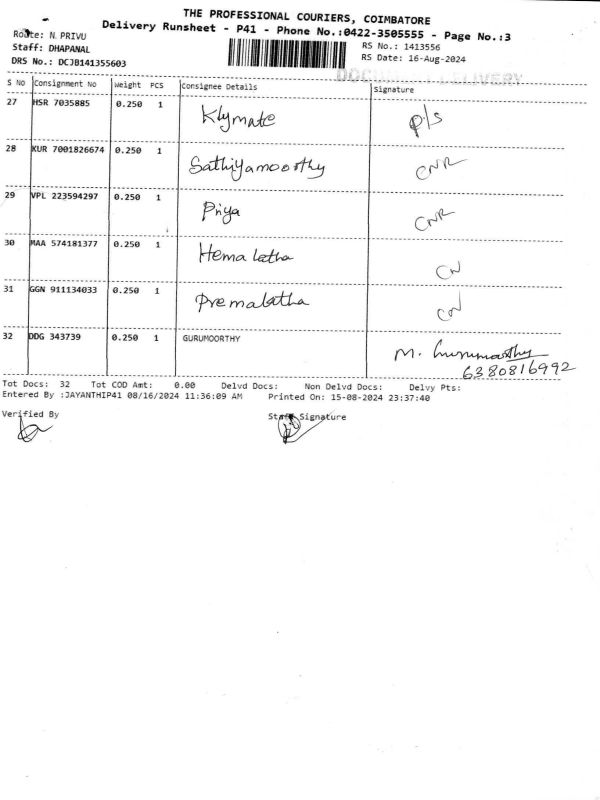 THE PROFESSIONAL COURIERS, COIMBATORE
Delivery Runsheet - P41 - Phone No.:0422-3505555 - Page No.:3
Route: N. PRIVU
RS No.: 1413556
Staff: DHAPANAL
RS Date: 16-Aug-2024
DRS No.: DCJB141355603
DELIVERY
S No Consignment No Weight PCS Consignee Details Signature
27 HSR 7035885 0.250 1 Klymate P/s
28 KUR 7001826674 0.250 1 Sathiyamoorthy CNR
29 VPL 223594297 0.250 1 Priya CNR
30 MAA 574181377 0.250 1 Hema latha CN
31 GGN 911134033 0.250 1 Premalatha
32 DDG 343739 0.250 1 GURUMOORTHY M. Gurumoorthy
6380816992
Tot Docs: 32 Tot COD Amt: 0.00 Delvd Docs: Non Delvd Docs: Delvy Pts:
Entered By :JAYANTHIP41 08/16/2024 11:36:09 AM Printed On: 15-08-2024 23:37:40
Verified By Staff Signature